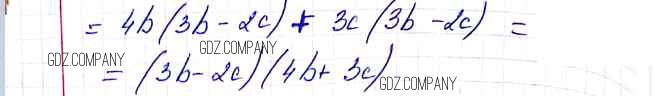 = 4b(3b - 2c) + 3c(3b - 2c) =
GDZ.COMPANY GDZ.COMPANY
= (3b - 2c)(4b + 3c)
GDZ.COMPANY GDZ.COMPANY